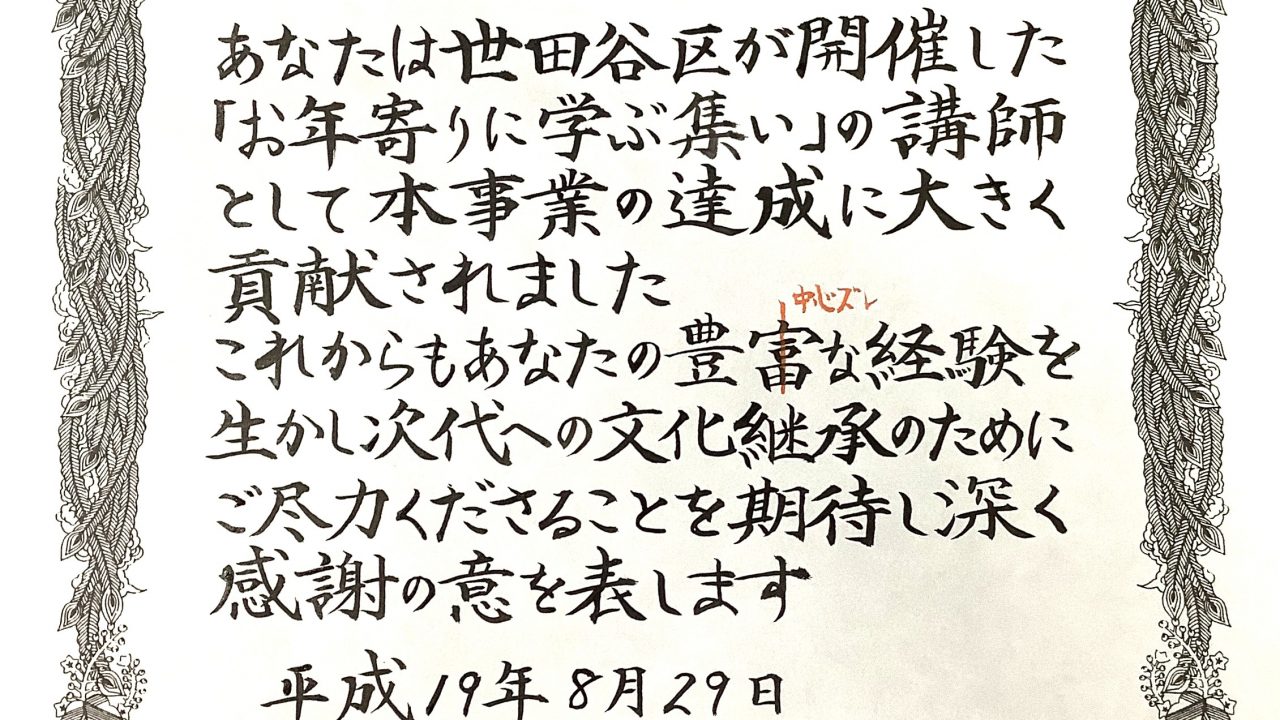 あなたは世田谷区が開催した
「お年寄りに学ぶ集い」の講師
として本事業の達成に大きく
貢献されました
中心ズレ
これからもあなたの豊富な経験を
生かし次代への文化継承のために
ご尽力くださることを期待し深く
感謝の意を表します
平成19年8月29日